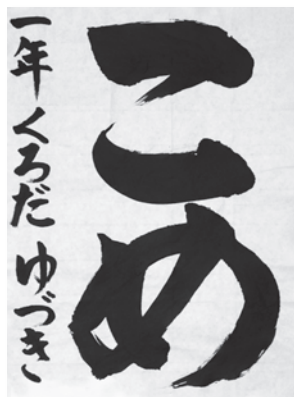 こめ
一年くろだゆづき